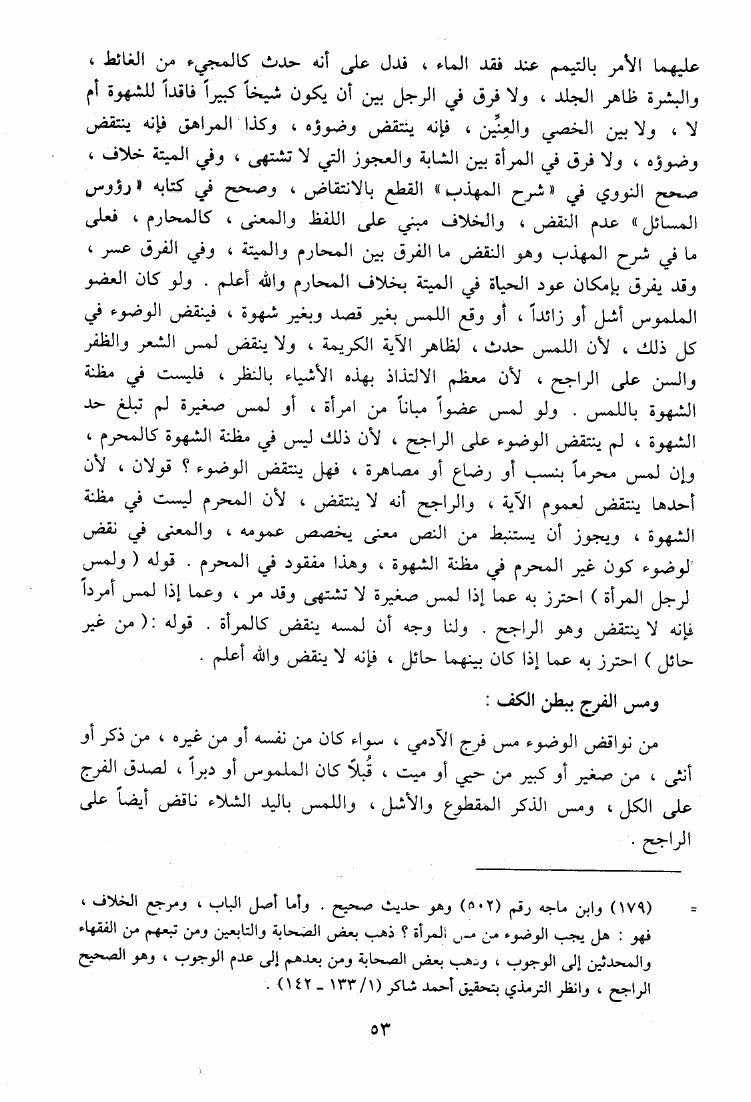 عليهما الأمر بالتيمم عند فقد الماء ، فدل على أنه حدث كالمجيء من الغائط ،
والبشرة ظاهر الجلد ، ولا فرق في الرجل بين أن يكون شيخاً كبيراً فاقداً للشهوة أم
لا ، ولا بين الخصي والعِنِّين ، فإنه ينتقض وضوؤه ، وكذا المراهق فإنه ينتقض
وضوؤه ، ولا فرق في المرأة بين الشابة والعجوز التي لا تشتهى ، وفي الميتة خلاف ،
صحح النووي في « شرح المهذب » القطع بالانتقاض ، وصحح في كتابه « رؤوس
المسائل » عدم النقض ، والخلاف مبني على اللفظ والمعنى ، كالمحارم ، فعلى
ما في شرح المهذب وهو النقض ما الفرق بين المحارم والميتة ، وفي الفرق عسر ،
وقد يفرق بإمكان عود الحياة في الميتة بخلاف المحارم والله أعلم . ولو كان العضو
الملموس أشل أو زائداً ، أو وقع اللمس بغير قصد وبغير شهوة ، فينقض الوضوء في
كل ذلك ، لأن اللمس حدث ، لظاهر الآية الكريمة ، ولا ينقض لمس الشعر والظفر
والسن على الراجح ، لأن معظم الالتذاذ بهذه الأشياء بالنظر ، فليست في مظنة
الشهوة باللمس . ولو لمس عضواً مباناً من امرأة ، أو لمس صغيرة لم تبلغ حد
الشهوة ، لم ينتقض الوضوء على الراجح ، لأن ذلك ليس في مظنة الشهوة كالمحرم ،
وإن لمس محرماً بنسب أو رضاع أو مصاهرة ، فهل ينتقض الوضوء ؟ قولان ، لأن
أحدها ينتقض لعموم الآية ، والراجح أنه لا ينتقض ، لأن المحرم ليست في مظنة
الشهوة ، ويجوز أن يستنبط من النص معنى يخصص عمومه ، والمعنى في نقض
لوضوء كون غير المحرم في مظنة الشهوة ، وهذا مفقود في المحرم . قوله ( ولمس
لرجل المرأة ) احترز به عما إذا لمس صغيرة لا تشتهى وقد مر ، وعما إذا لمس أمرداً
فإنه لا ينتقض وهو الراجح . ولنا وجه أن لمسه ينقض كالمرأة . قوله :( من غير
حائل ) احترز به عما إذا كان بينهما حائل ، فإنه لا ينقض والله أعلم .
ومس الفرج ببطن الكف :
من نواقض الوضوء مس فرج الآدمي ، سواء كان من نفسه أو من غيره ، من ذكر أو
أنثى ، من صغير أو كبير من حيي أو ميت ، قُبلاً كان الملموس أو دبراً ، لصدق الفرج
على الكل ، ومس الذكر المقطوع والأشل ، واللمس باليد الشلاء ناقض أيضاً على
الراجح .
= (١٧٩) وابن ماجه رقم (٥٠٢) وهو حديث صحيح . وأما أصل الباب ، ومرجع الخلاف ،
فهو : هل يجب الوضوء من مس المرأة ؟ ذهب بعض الصحابة والتابعين ومن تبعهم من الفقهاء
والمحدثين إلى الوجوب ، وذهب بعض الصحابة ومن بعدهم إلى عدم الوجوب ، وهو الصحيح
الراجح ، وانظر الترمذي بتحقيق أحمد شاكر (١/ ١٣٣ ـ ١٤٢) .
٥٣